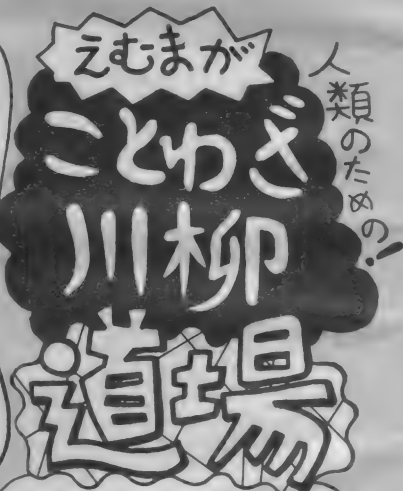 えむまが
人類のための!
ことわざ
川柳
道場